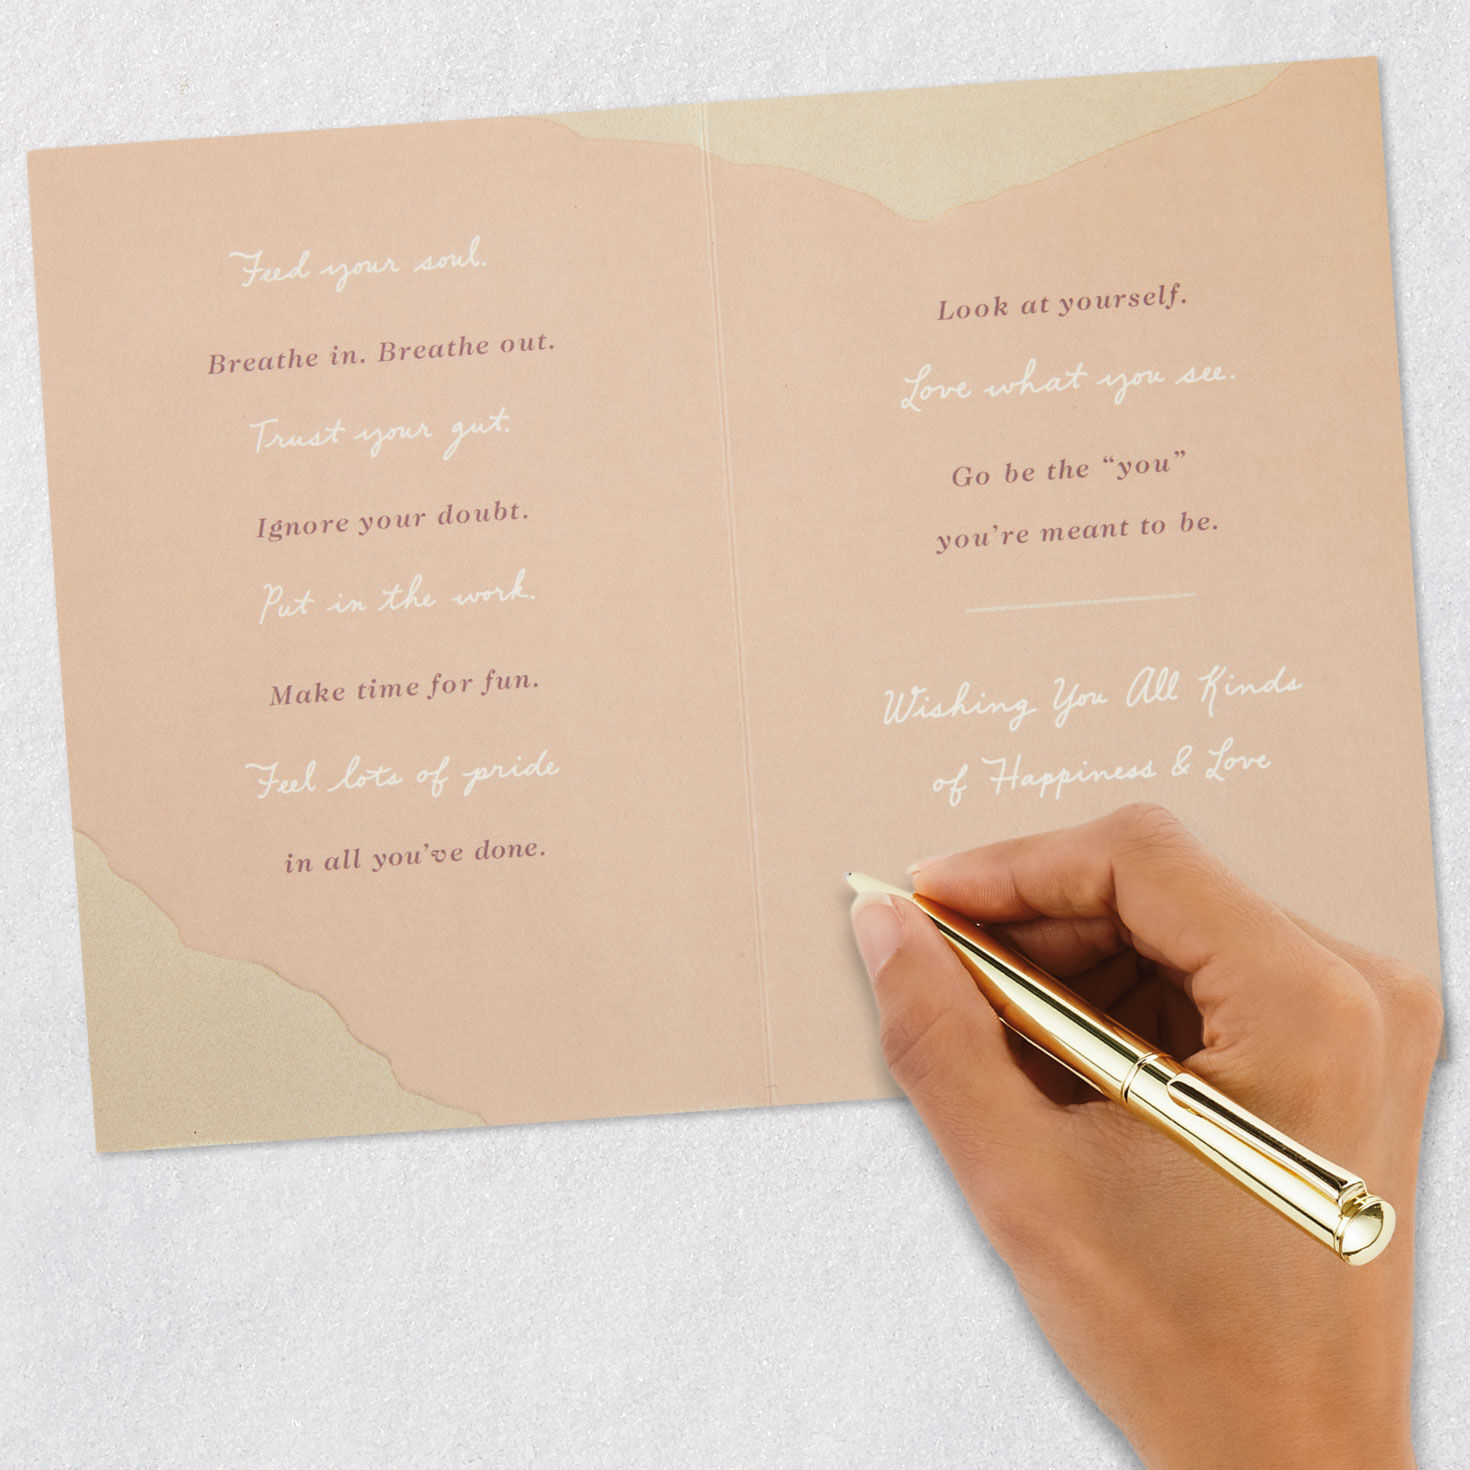 Feed your soul.
Breathe in. Breathe out.
Trust your gut.
Ignore your doubt.
Put in the work.
Make time for fun.
Feel lots of pride
in all you've done.
Look at yourself.
Love what you see.
Go be the “you”
you're meant to be.
Wishing You All Kinds
of Happiness & Love